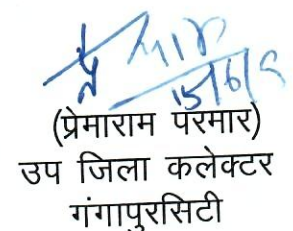 15/6/9
(प्रेमाराम परमार)
उप जिला कलेक्टर
गंगापुरसिटी